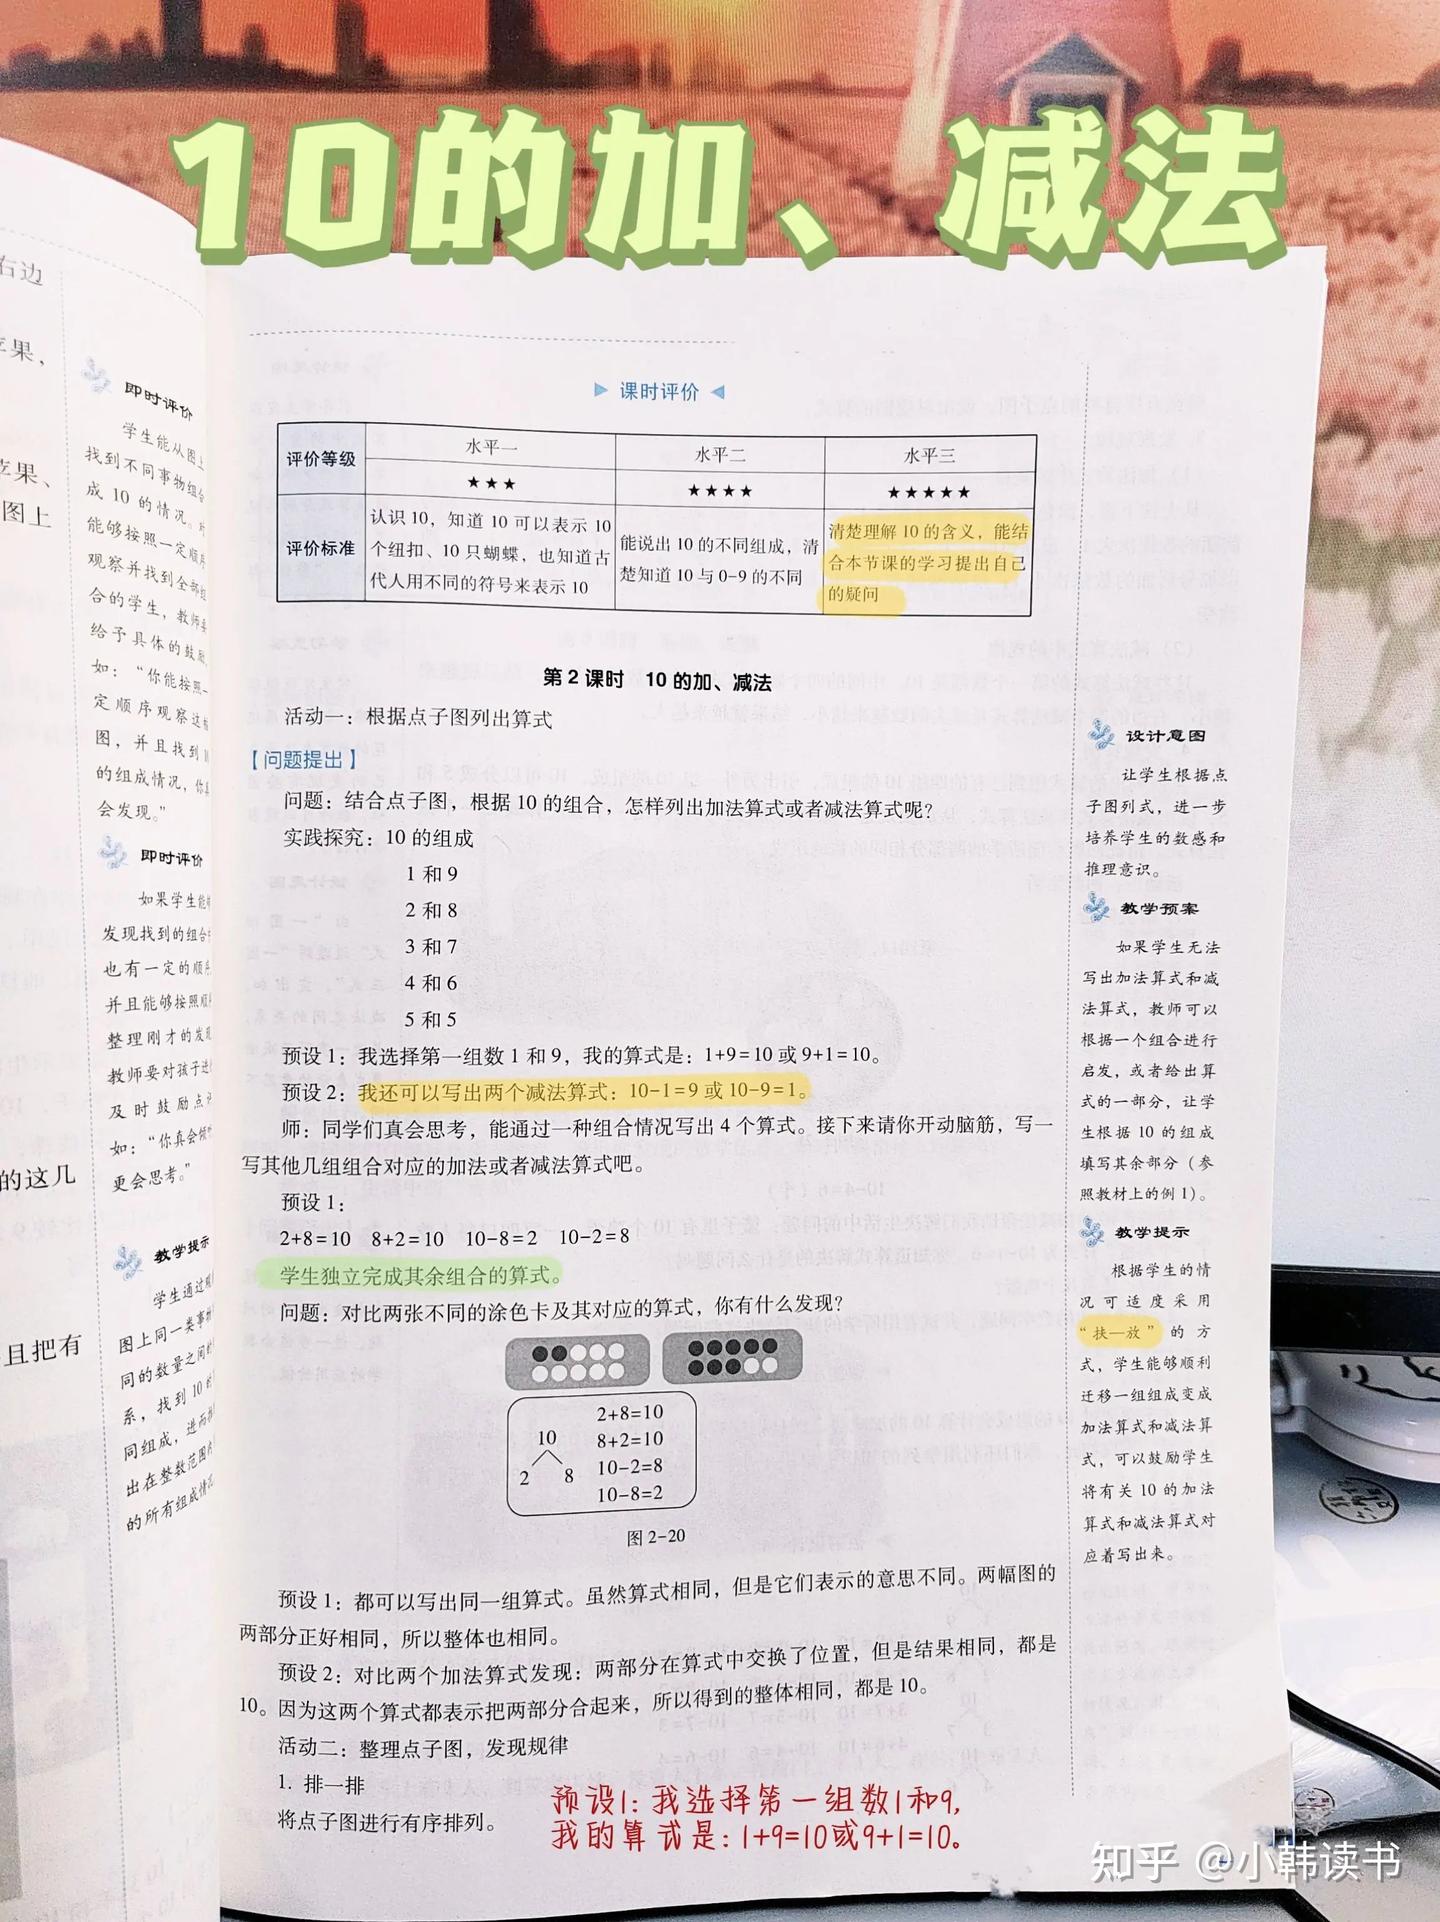 10的加、减法
右边
苹果，
苹果、
图上
的这几
且把有
即时评价
学生能从图上
找到不同事物组合
成 10 的情况。对
能够按照一定顺序
观察并找到全部组
合的学生，教师要
给予具体的鼓励，
如：“你能按照一
定顺序观察这幅
图，并且找到 10
的组成情况，你真
会发现。”
即时评价
如果学生能够
发现找到的组合中
也有一定的顺序，
并且能够按照顺序
整理刚才的发现，
教师要对孩子进行
及时鼓励点评，
如：“你真会倾听，
更会思考。”
教学提示
学生通过观
图上同一类事物
同的数量之间的
系，找到 10 的
同组成，进而
出在整数范围内
的所有组成情况
课时评价
评价等级 水平一 水平二 水平三
★★★ ★★★★ ★★★★★
评价标准
认识 10，知道 10 可以表示 10
个纽扣、10 只蝴蝶，也知道古
代人用不同的符号来表示 10
能说出 10 的不同组成，清
楚知道 10 与 0-9 的不同
清楚理解 10 的含义，能结
合本节课的学习提出自己
的疑问
第 2 课时 10 的加、减法
活动一：根据点子图列出算式
【问题提出】
问题：结合点子图，根据 10 的组合，怎样列出加法算式或者减法算式呢？
实践探究：10 的组成
1 和 9
2 和 8
3 和 7
4 和 6
5 和 5
预设 1：我选择第一组数 1 和 9，我的算式是：1+9=10 或 9+1=10。
预设 2：我还可以写出两个减法算式：10-1=9 或 10-9=1。
师：同学们真会思考，能通过一种组合情况写出 4 个算式。接下来请你开动脑筋，写一
写其他几组组合对应的加法或者减法算式吧。
预设 1：
2+8=10 8+2=10 10-8=2 10-2=8
学生独立完成其余组合的算式。
问题：对比两张不同的涂色卡及其对应的算式，你有什么发现？
10
2 8
2+8=10
8+2=10
10-2=8
10-8=2
图 2-20
预设 1：都可以写出同一组算式。虽然算式相同，但是它们表示的意思不同。两幅图的
两部分正好相同，所以整体也相同。
预设 2：对比两个加法算式发现：两部分在算式中交换了位置，但是结果相同，都是
10。因为这两个算式都表示把两部分合起来，所以得到的整体相同，都是 10。
活动二：整理点子图，发现规律
1. 排一排
将点子图进行有序排列。
设计意图
让学生根据点
子图列式，进一步
培养学生的数感和
推理意识。
教学预案
如果学生无法
写出加法算式和减
法算式，教师可以
根据一个组合进行
启发，或者给出算
式的一部分，让学
生根据 10 的组成
填写其余部分（参
照教材上的例 1）。
教学提示
根据学生的情
况可适度采用
“扶—放”的方
式，学生能够顺利
迁移一组组成变成
加法算式和减法算
式，可以鼓励学生
将有关 10 的加法
算式和减法算式对
应着写出来。
预设1：我选择第一组数1和9，
我的算式是：1+9=10或9+1=10。
知乎 @小韩读书